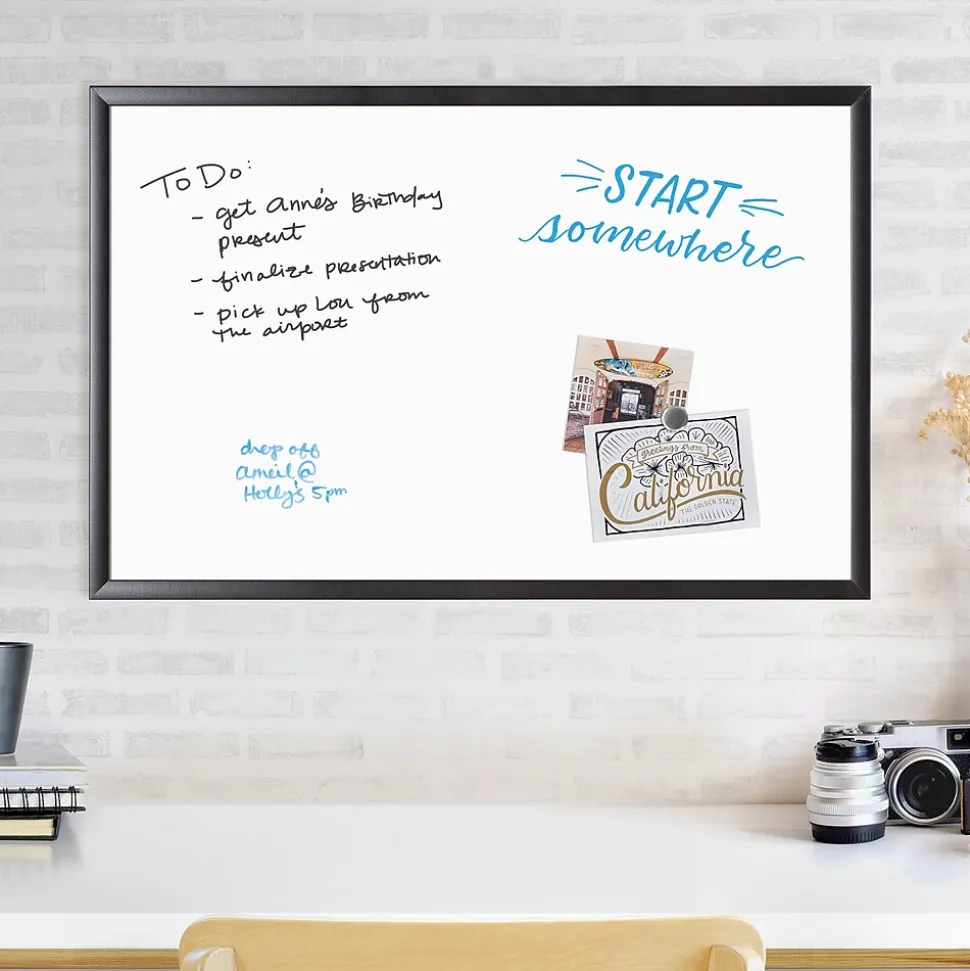 To Do:
- get Anne's Birthday
present
- finalize presentation
- pick up Lou from
the airport
START
somewhere
drop off
@
Holly's 5pm
Greetings from
California
THE GOLDEN STATE